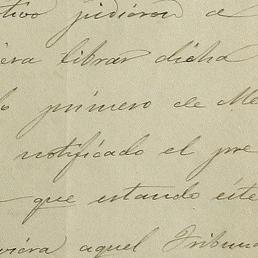 tivo pidieron a
era librar dicha
lo primero de Me
notificado el pre
que estando éste
viéra aquel Tribuna